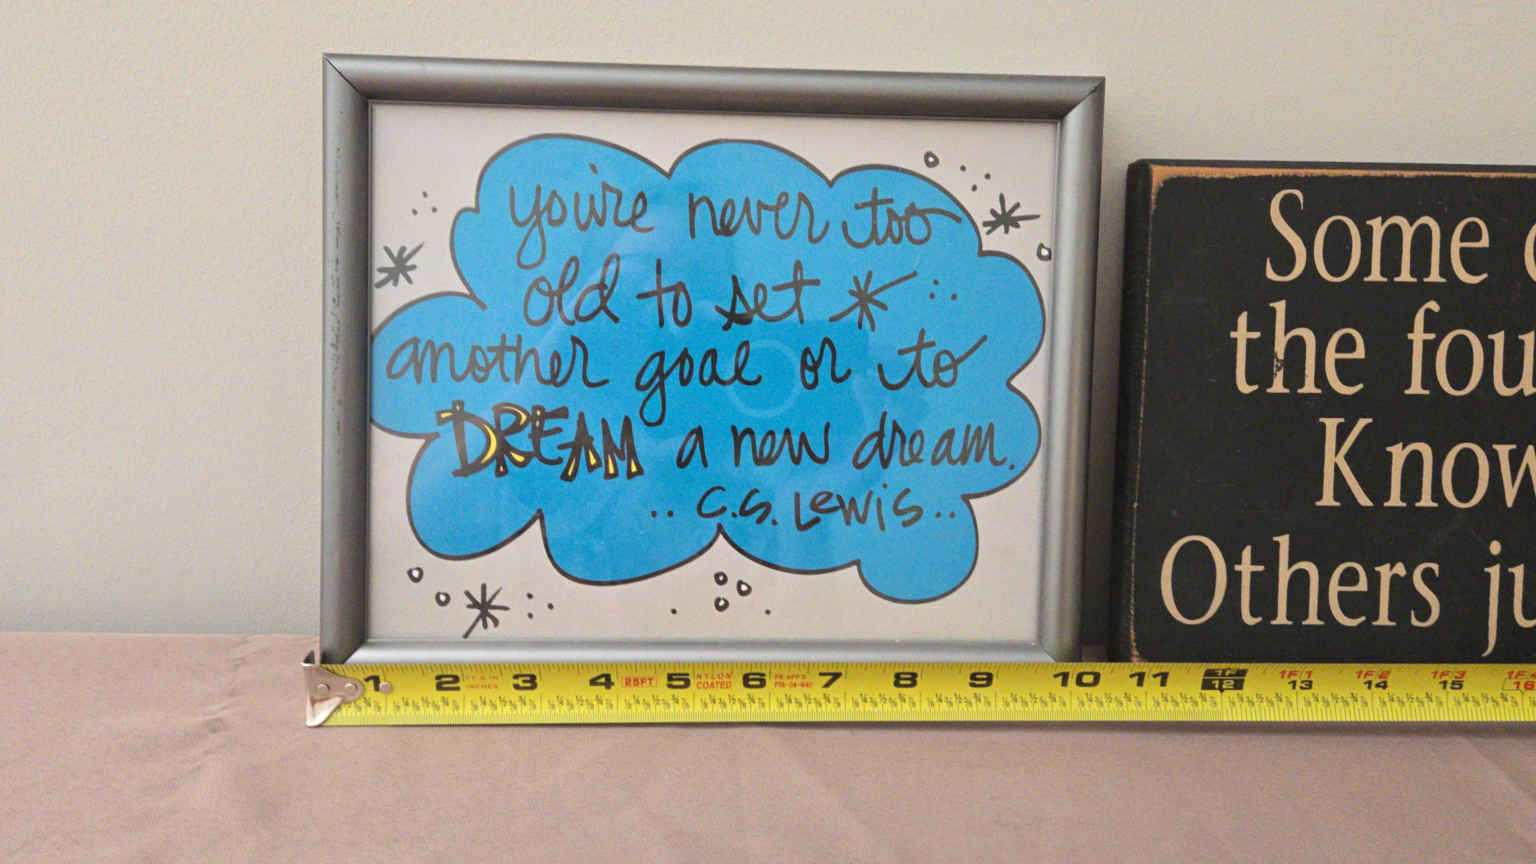 you're never too
old to set
another goal or to
DREAM a new dream.
..C.S. Lewis..
Some
the fou
Know
Others ju
1 2 FT & IN INCHES 3 4 25FT 5 NYLON COATED 6 7 8 9 10 11 1F 12 1F1 13 1F2 14 1F3 15 16